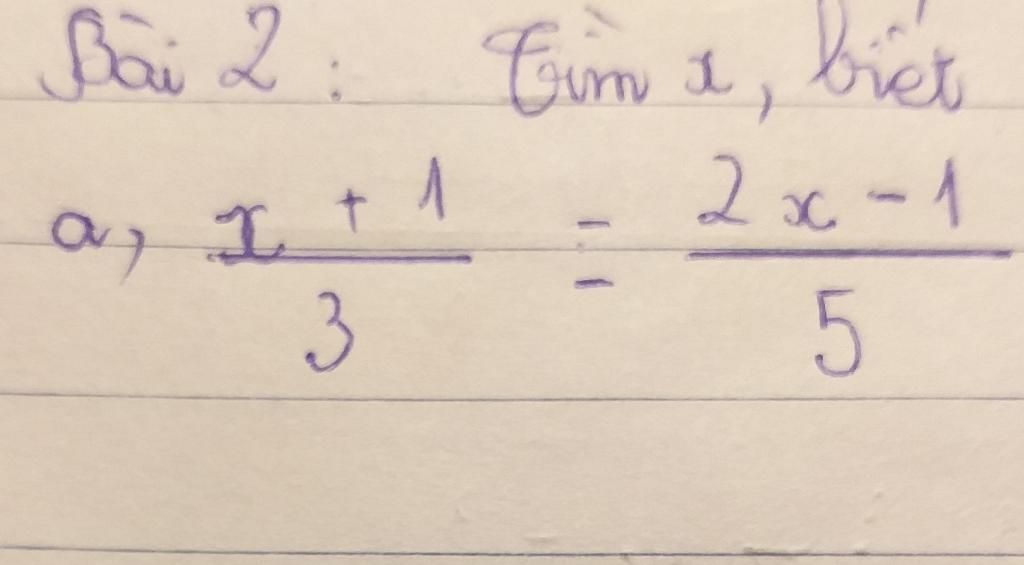 Bài 2 : Tìm x, biết
a, \frac{x + 1}{3} = \frac{2x - 1}{5}